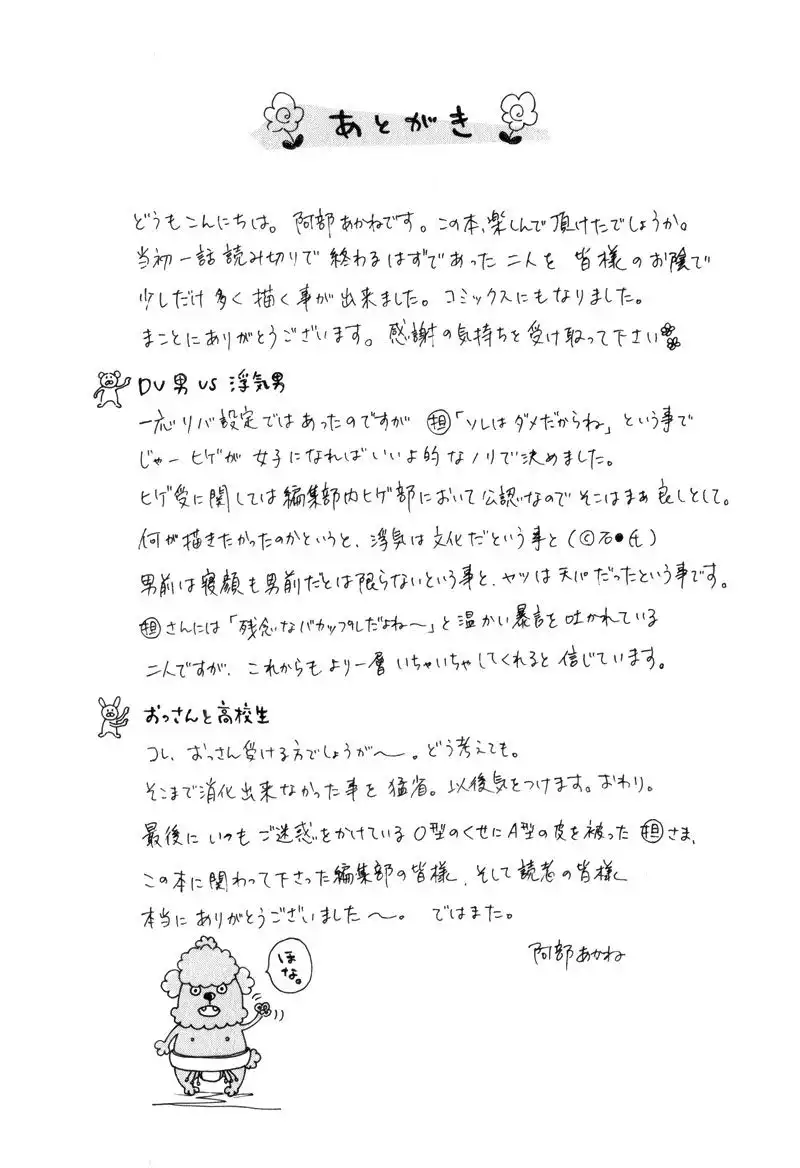 あとがき
どうもこんにちは。阿部あかねです。この本、楽しんで頂けたでしょうか。
当初一話読み切りで終わるはずであった二人を皆様のお陰で
少しだけ多く描く事が出来ました。コミックスにもなりました。
まことにありがとうございます。感謝の気持ちを受け取って下さい
DV男VS浮気男
一応リバ設定ではあったのですが㊐「ソレはダメだからね」という事で
じゃーヒゲが女子になればいいよ的なノリで決めました。
ヒゲ受に関しては編集部内ヒゲ部において公認なのでそこはまぁ良しとして。
何が描きたかったのかというと、浮気は文化だという事と(©石●氏)
男前は寝顔も男前だとは限らないという事と、ヤツは天パだったという事です。
担さんには「残念なバカップルだよね〜」と温かい暴言を吐かれている
二人ですが、これからもより一層いちゃいちゃしてくれると信じています。
おっさんと高校生
コレ、おっさん受ける方でしょうが〜。どう考えても。
そこまで消化出来なかった事を猛省。以後気をつけます。おわり。
最後にいつもご迷惑をかけているO型のくせにA型の皮を被った担さま、
この本に関わって下さった編集部の皆様、そして読者の皆様
本当にありがとうございました〜。ではまた。
阿部あかね
ほな。